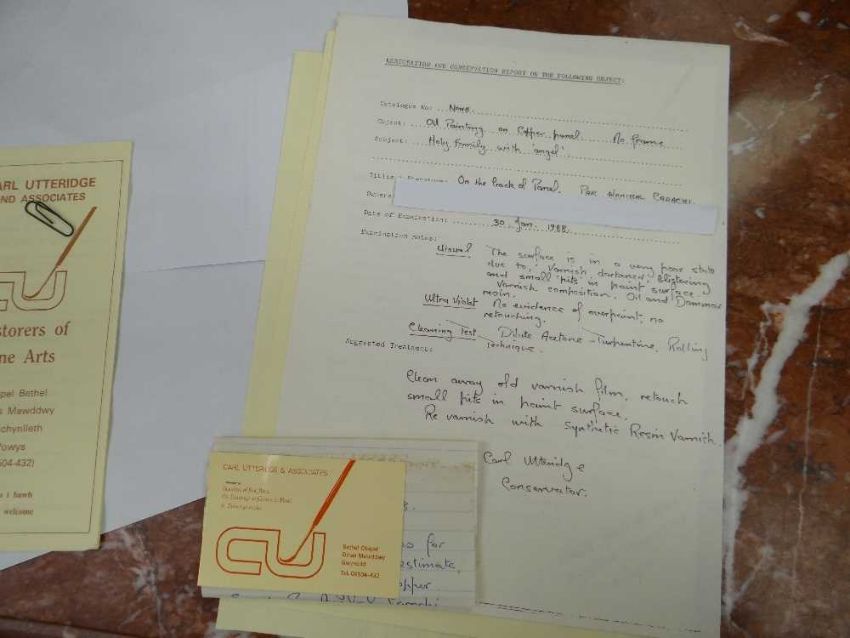 CARL UTTERIDGE
AND ASSOCIATES
CU
Restorers of
Fine Arts
Chapel Bethel
Dinas Mawddwy
Machynlleth
Powys
504-432)
welcome
RESTORATION AND CONSERVATION REPORT ON THE FOLLOWING OBJECT:
Catalogue No: None
Object: Oil Painting on Copper panel No frame
Subject: 'Holy Family with angel'
On the back of Panel.
Date of Examination: 30 Jan. 1988
Examination Notes:
Visual The surface is in a very poor state
due to, Varnish, darkened, blistering
and small pits in paint surface.
Varnish composition. Oil and Dammar
resin.
Ultra Violet No evidence of overpaint, no
retouching.
Cleaning Test Dilute Acetone - Turpentine, Rolling
technique.
Suggested Treatment:
Clean away old varnish film, retouch
small pits in paint surface.
Re varnish with Synthetic Resin Varnish.
Carl Utteridge
Conservator.
CARL UTTERIDGE & ASSOCIATES
CU
Bethel Chapel
Dinas Mawddwy
Gwynedd
Tel. 06504-432
for
estimate,